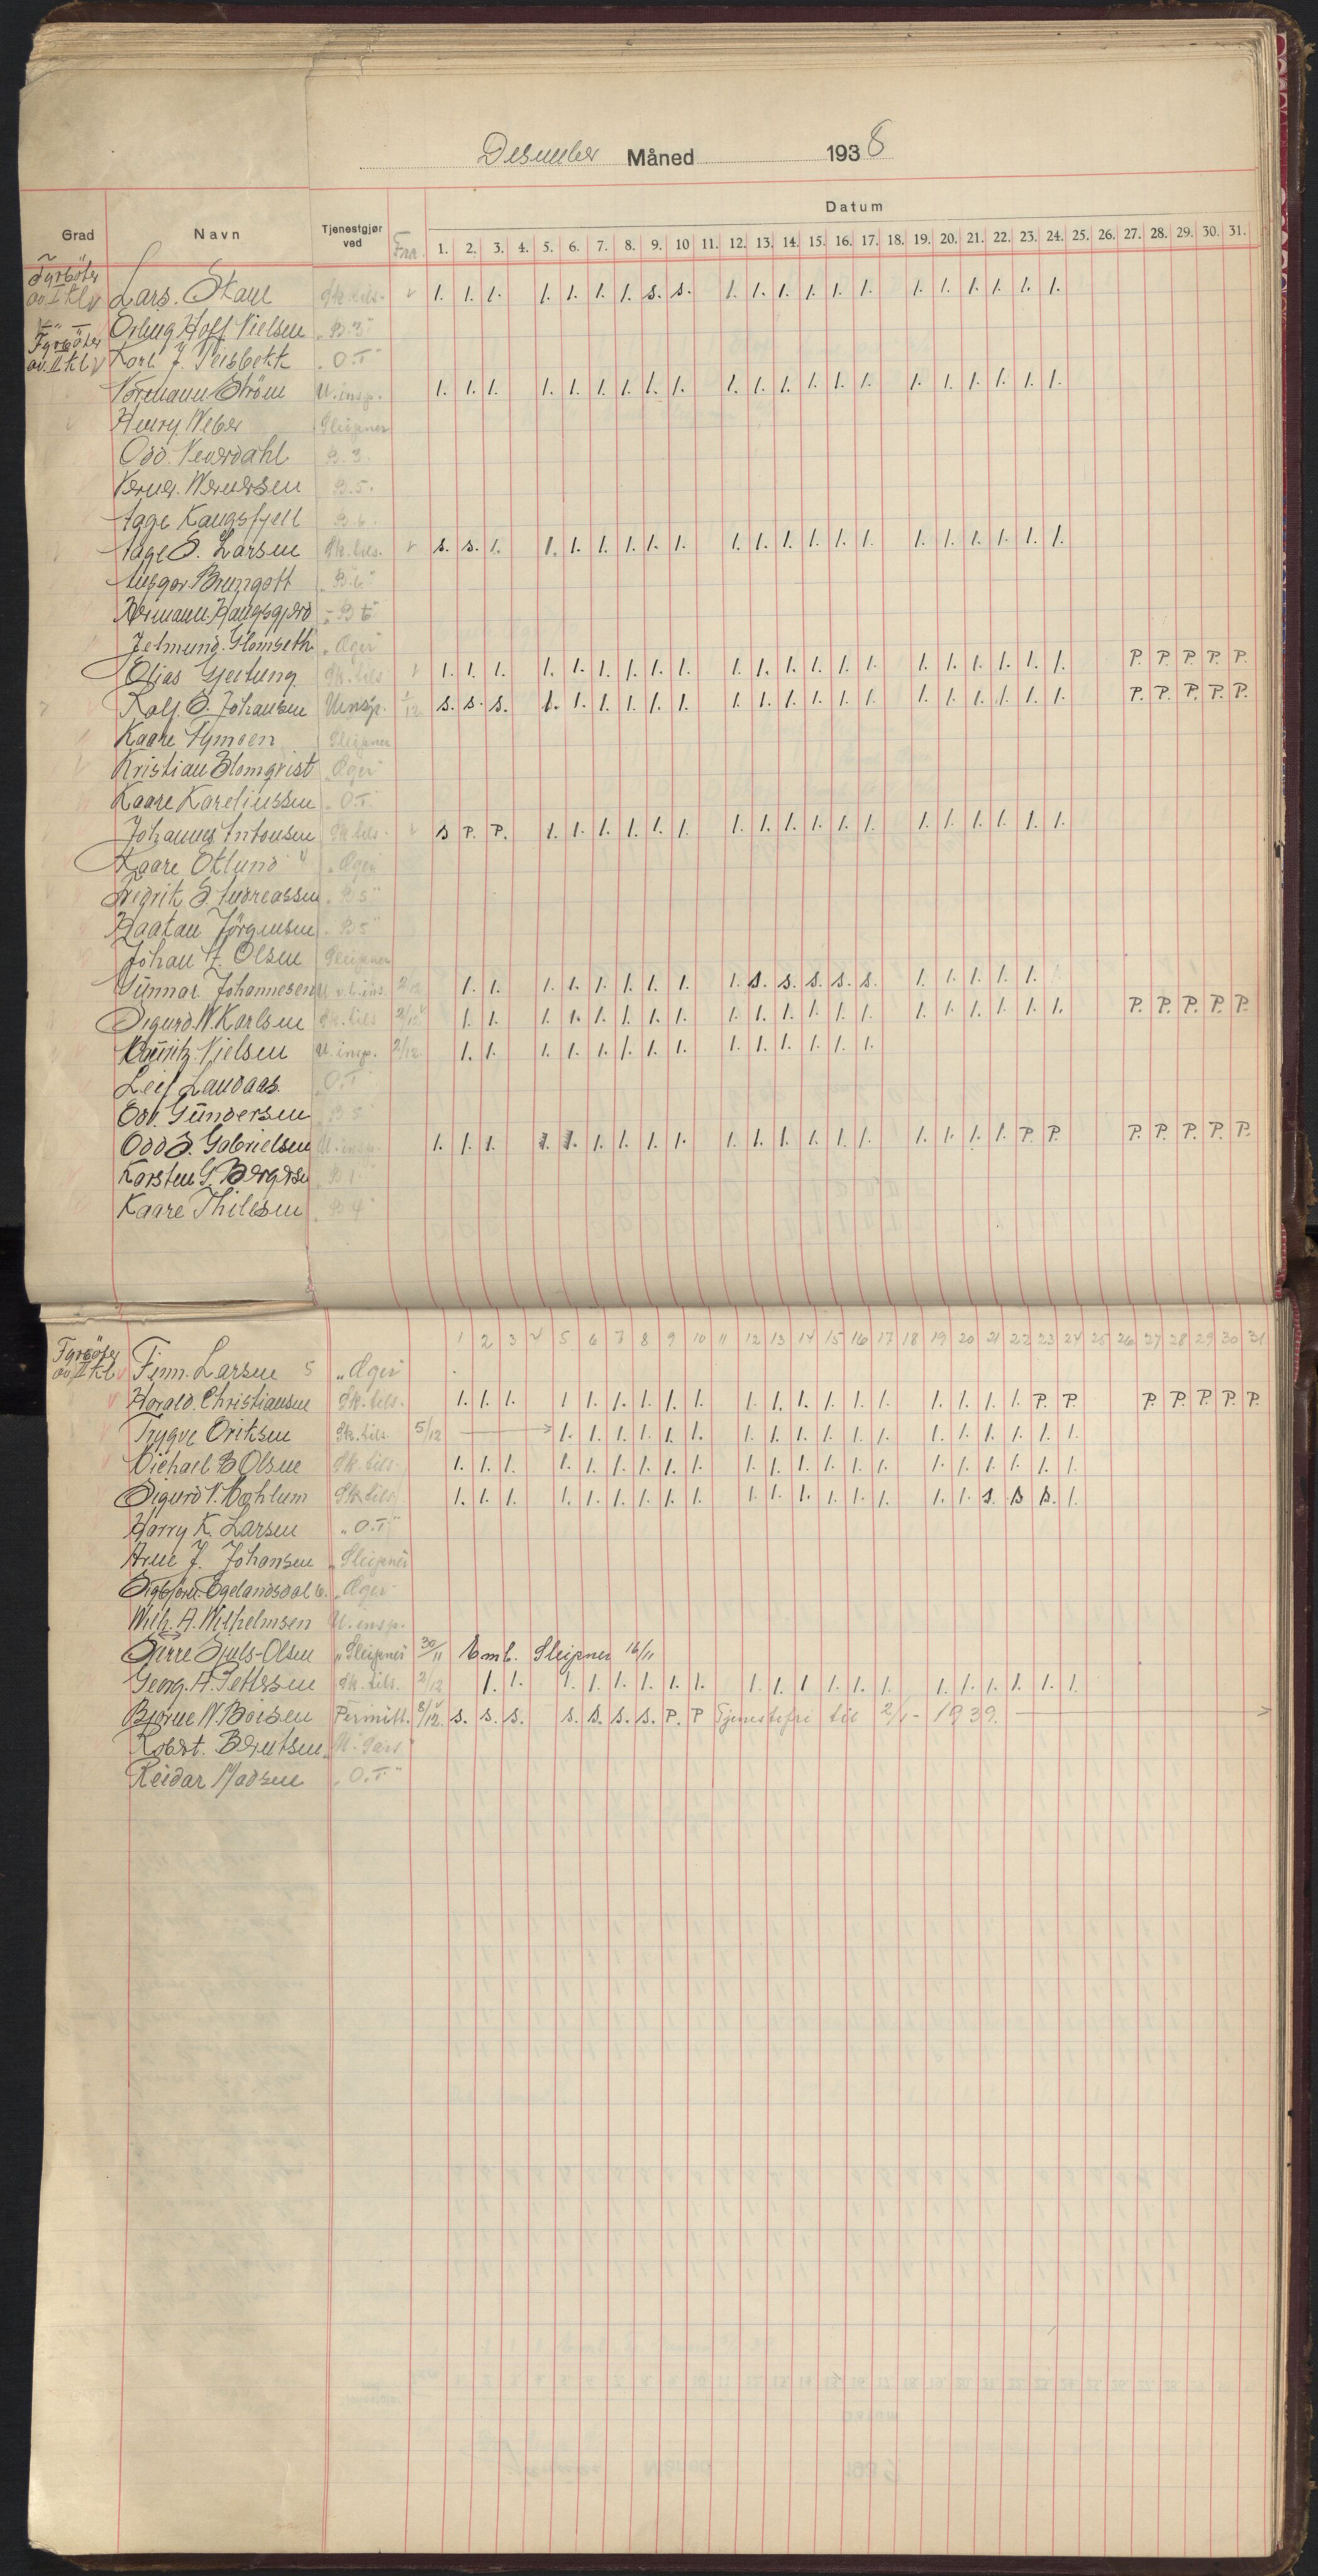 Desember Måned 1938
Datum
Grad Navn Tjenestgjør ved Fra. 1. 2. 3. 4. 5. 6. 7. 8. 9. 10 11. 12. 13. 14. 15. 16. 17. 18. 19. 20. 21. 22. 23. 24. 25. 26. 27. 28. 29. 30. 31.
Fyrböter
av. I kl v Lars. Skau Sk. tils. v 1. 1. 1. 1. 1. 1. 1. s. s. 1. 1. 1. 1. 1. 1. 1. 1. 1. 1. 1. 1.
Erling Hoff Nielsen „B.3"
Fyrböter
av. II kl v Karl J. „O.T"
Normann Ström U. insp. 1. 1. 1. 1. 1. 1. 1. 1. 1. 1. 1. 1. 1. 1. 1. 1. 1. 1. 1. 1. 1.
Henry Weber Sleipner
Odd. Neverdahl B. 3.
Verner. Wernersen B. 5.
Aage Kaugsfjell B. 6.
Aage S. Larsen Sk. tils. v s. s. 1. 1. 1. 1. 1. 1. 1. 1. 1. 1. 1. 1. 1. 1. 1. 1. 1. 1. 1.
Ansgar Brungott „B. 6"
Hermann Haugsgjerd „B 6"
Jetmund. Glomseth „Æger"
Elias Gjertung Sk. tils v 1. 1. 1. 1. 1. 1. 1. 1. 1. 1. 1. 1. 1. 1. 1. 1. 1. 1. 1. 1. 1. P. P. P. P. P.
Rolf. O. Johansen U insp. 1/12 s. s. s. 1. 1. 1. 1. 1. 1. 1. 1. 1. 1. 1. 1. 1. 1. 1. 1. 1. 1. P. P. P. P. P.
Kaare Tymoen Sleipner
Kristian Blomqvist „Æger"
Kaare Kareliussen „O.T.
Johannes Antonsen Sk. tils. v s P. P. 1. 1. 1. 1. 1. 1. 1. 1. 1. 1. 1. 1. 1. 1. 1. 1. 1. 1.
Kaare Oklund 4 „Æger
Fredrik S. Andreassen „B 5"
Haakan Jörgensen „B 5"
Johan H. Olsen Sleipner
Gunnar Johannesen 2/12 1. 1. 1. 1. 1. 1. 1. 1. 1. s. s. s. s. s. 1. 1. 1. 1. 1.
Sigurd W. Karlsen Sk. tils 2/12 1. 1. 1. 1. 1. 1. 1. 1. 1. 1. 1. 1. 1. 1. 1. 1. 1. 1. 1. 1. P. P. P. P. P.
Mauritz Nielsen U. insp. 2/12 1. 1. 1. 1. 1. 1. 1. 1. 1. 1. 1. 1. 1. 1.
Leif Landaas „O.T"
Odv. Gundersen B 5
Odd S. Gabrielsen U. insp. 1. 1. 1. 1. 1. 1. 1. 1. 1. 1. 1. 1. 1. 1. 1. 1. 1. 1. 1. P. P. P. P. P. P. P.
Karsten G. Bergersen „B 1"
Kaare Thilesen „B 4"
1 2 3 4 5 6 7 8 9 10 11 12 13 14 15 16 17 18 19 20 21 22 23 24 25 26 27 28 29 30 31
Fyrböter
av. II kl v Finn. Larsen 5 „Æger
Harald. Christiansen Sk. tils. 1. 1. 1. 1 1. 1. 1. 1. 1. 1. 1. 1. 1. 1. 1. 1. 1. 1. 1. P. P. P. P. P. P. P.
Trygve Eriksen Sk. tils. 5/12 1. 1. 1. 1. 1. 1. 1. 1. 1. 1. 1. 1. 1. 1. 1. 1. 1. 1.
Michael B Olsen Sk. tils 1. 1. 1. 1. 1. 1. 1. 1. 1. 1. 1. 1. 1. 1. 1. 1. 1. 1. 1. 1. 1.
Sigurd V. Mæhlum Sk. tils 1. 1. 1. 1. 1. 1. 1. 1. 1. 1. 1. 1. 1. 1. 1. 1. 1. s. s s. 1.
Harry K. Larsen „O.T"
Arne J. Johansen „Sleipner
Sigbjörn. Egelandsdal 6. „Æger
Wilh. A. Wilhelmsen U. insp.
Sverre Sjuls-Olsen „Sleipner 30/11 Emb. Sleipner 16/11
Georg. A. Pettersen Sk. tils. 2/12 1. 1. 1. 1. 1. 1. 1. 1. 1. 1. 1 1. 1. 1. 1. 1. 1. 1. 1. 1.
Bjarne W. Boisen Permitt. 8/12 s. s. s. s. s. s. s. P. P Tjenestefri til 2/1- 1939.
Robert. Berntsen
Reidar Madsen „O.T"